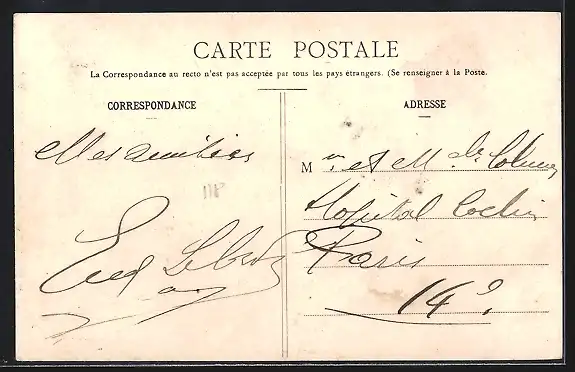 CARTE POSTALE
La Correspondance au recto n'est pas acceptée par tous les pays étrangers. (Se renseigner à la Poste.
CORRESPONDANCE
Mes amitiés
ADRESSE
M r. et Mme
Hôpital Cochin
Paris
14e.